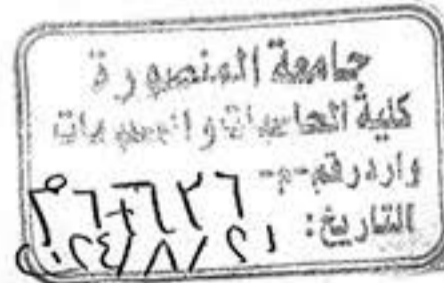 جامعة المنصورة
كلية الحاسبات والمعلومات
وارد رقم -م-
التاريخ: ٢٠٢٤/٨/٢١